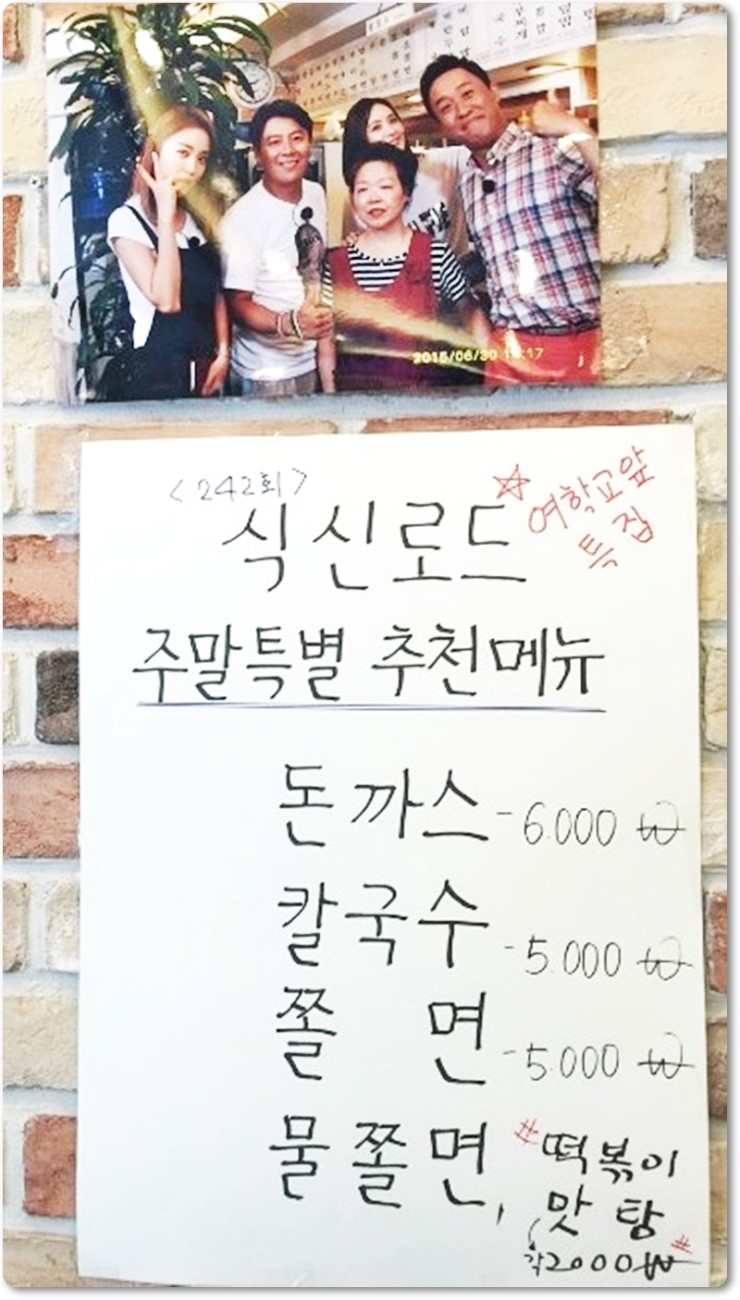 2015/06/30
<242회>
식신로드
☆ 여학교앞
특집
주말특별 추천메뉴
돈까스 - 6.000 ₩
칼국수 - 5.000 ₩
쫄 면 - 5.000 ₩
물쫄면, # 떡볶이
맛탕
각2000₩ #